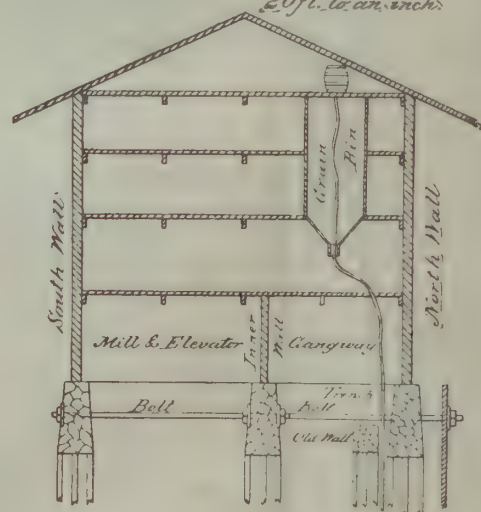 20ft. to an inch.
Grain Bin
South Wall
North Wall
Mill & Elevator
Inner Wall
Gangway
Bolt
Trench
Bolt
Old Wall